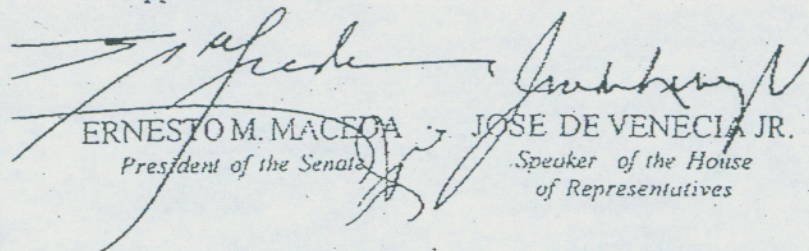 ERNESTO M. MACEDA
President of the Senate
JOSE DE VENECIA JR.
Speaker of the House
of Representatives